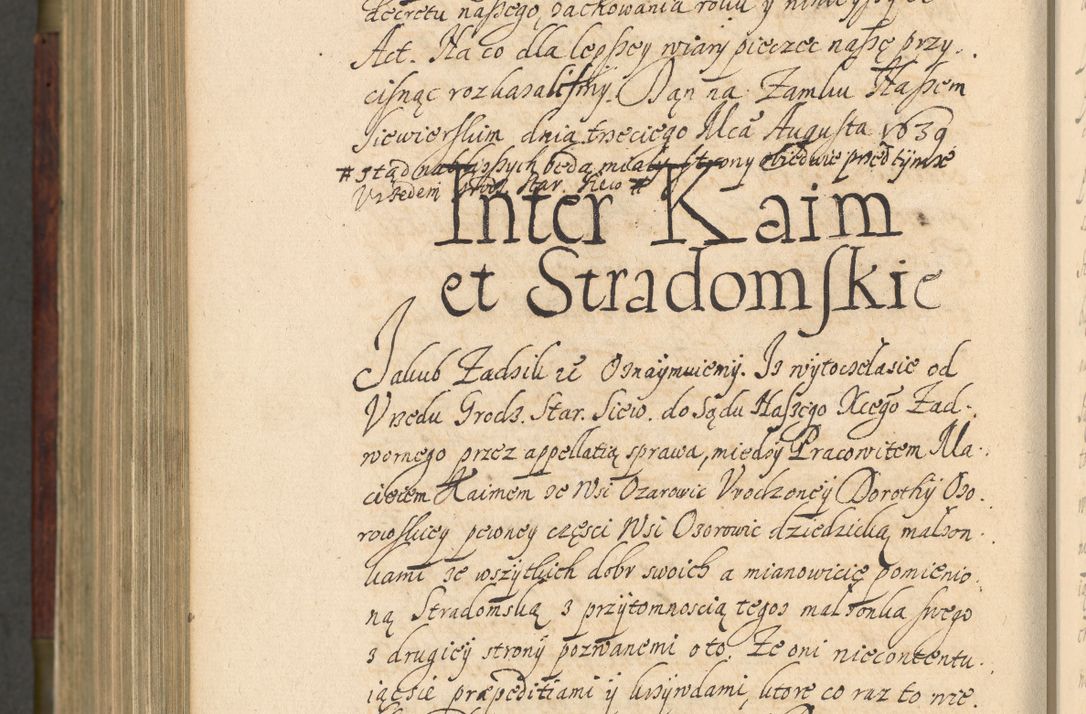 decretu naszego, zachowania roku y
Act. Na co dla lepszey wiary pieczęć naszę przy.
cisnąć rozkazalismy. Dan na Zamku Naszem
Siewierskim dnia trzeciego Mca Augusta 1639
# ztąd będą miały strony obiedwie przed tymże
Vrzędem Grodz. Star. Siew #
Inter Kaim
et Stradomskie
Jakub Zadzik etc Oznaymuiemy. Iż wytoczełasie od
Vrzędu Grodz. Star. Siew. do Sądu Naszego Xcego Zad.
wornego przez appellatią sprawa, miedzy Pracowitem Ma.
cieiem Kaimem ze Wsi Ozarowic Vrodzoney Dorothy Ozo.
rowskiey pewney częsci Wsi Ozorowic dziedziczką małżon.
kami ze wszytkich dobr swoich a mianowicię pomienio.
ną Stradomską z przytomnoscią tegoz małżonka swego
z drugiey strony pozwanemi oto. Ze oni niecontentu.
iącsie præpeditiami y krzywdami, ktore co raz to nie.